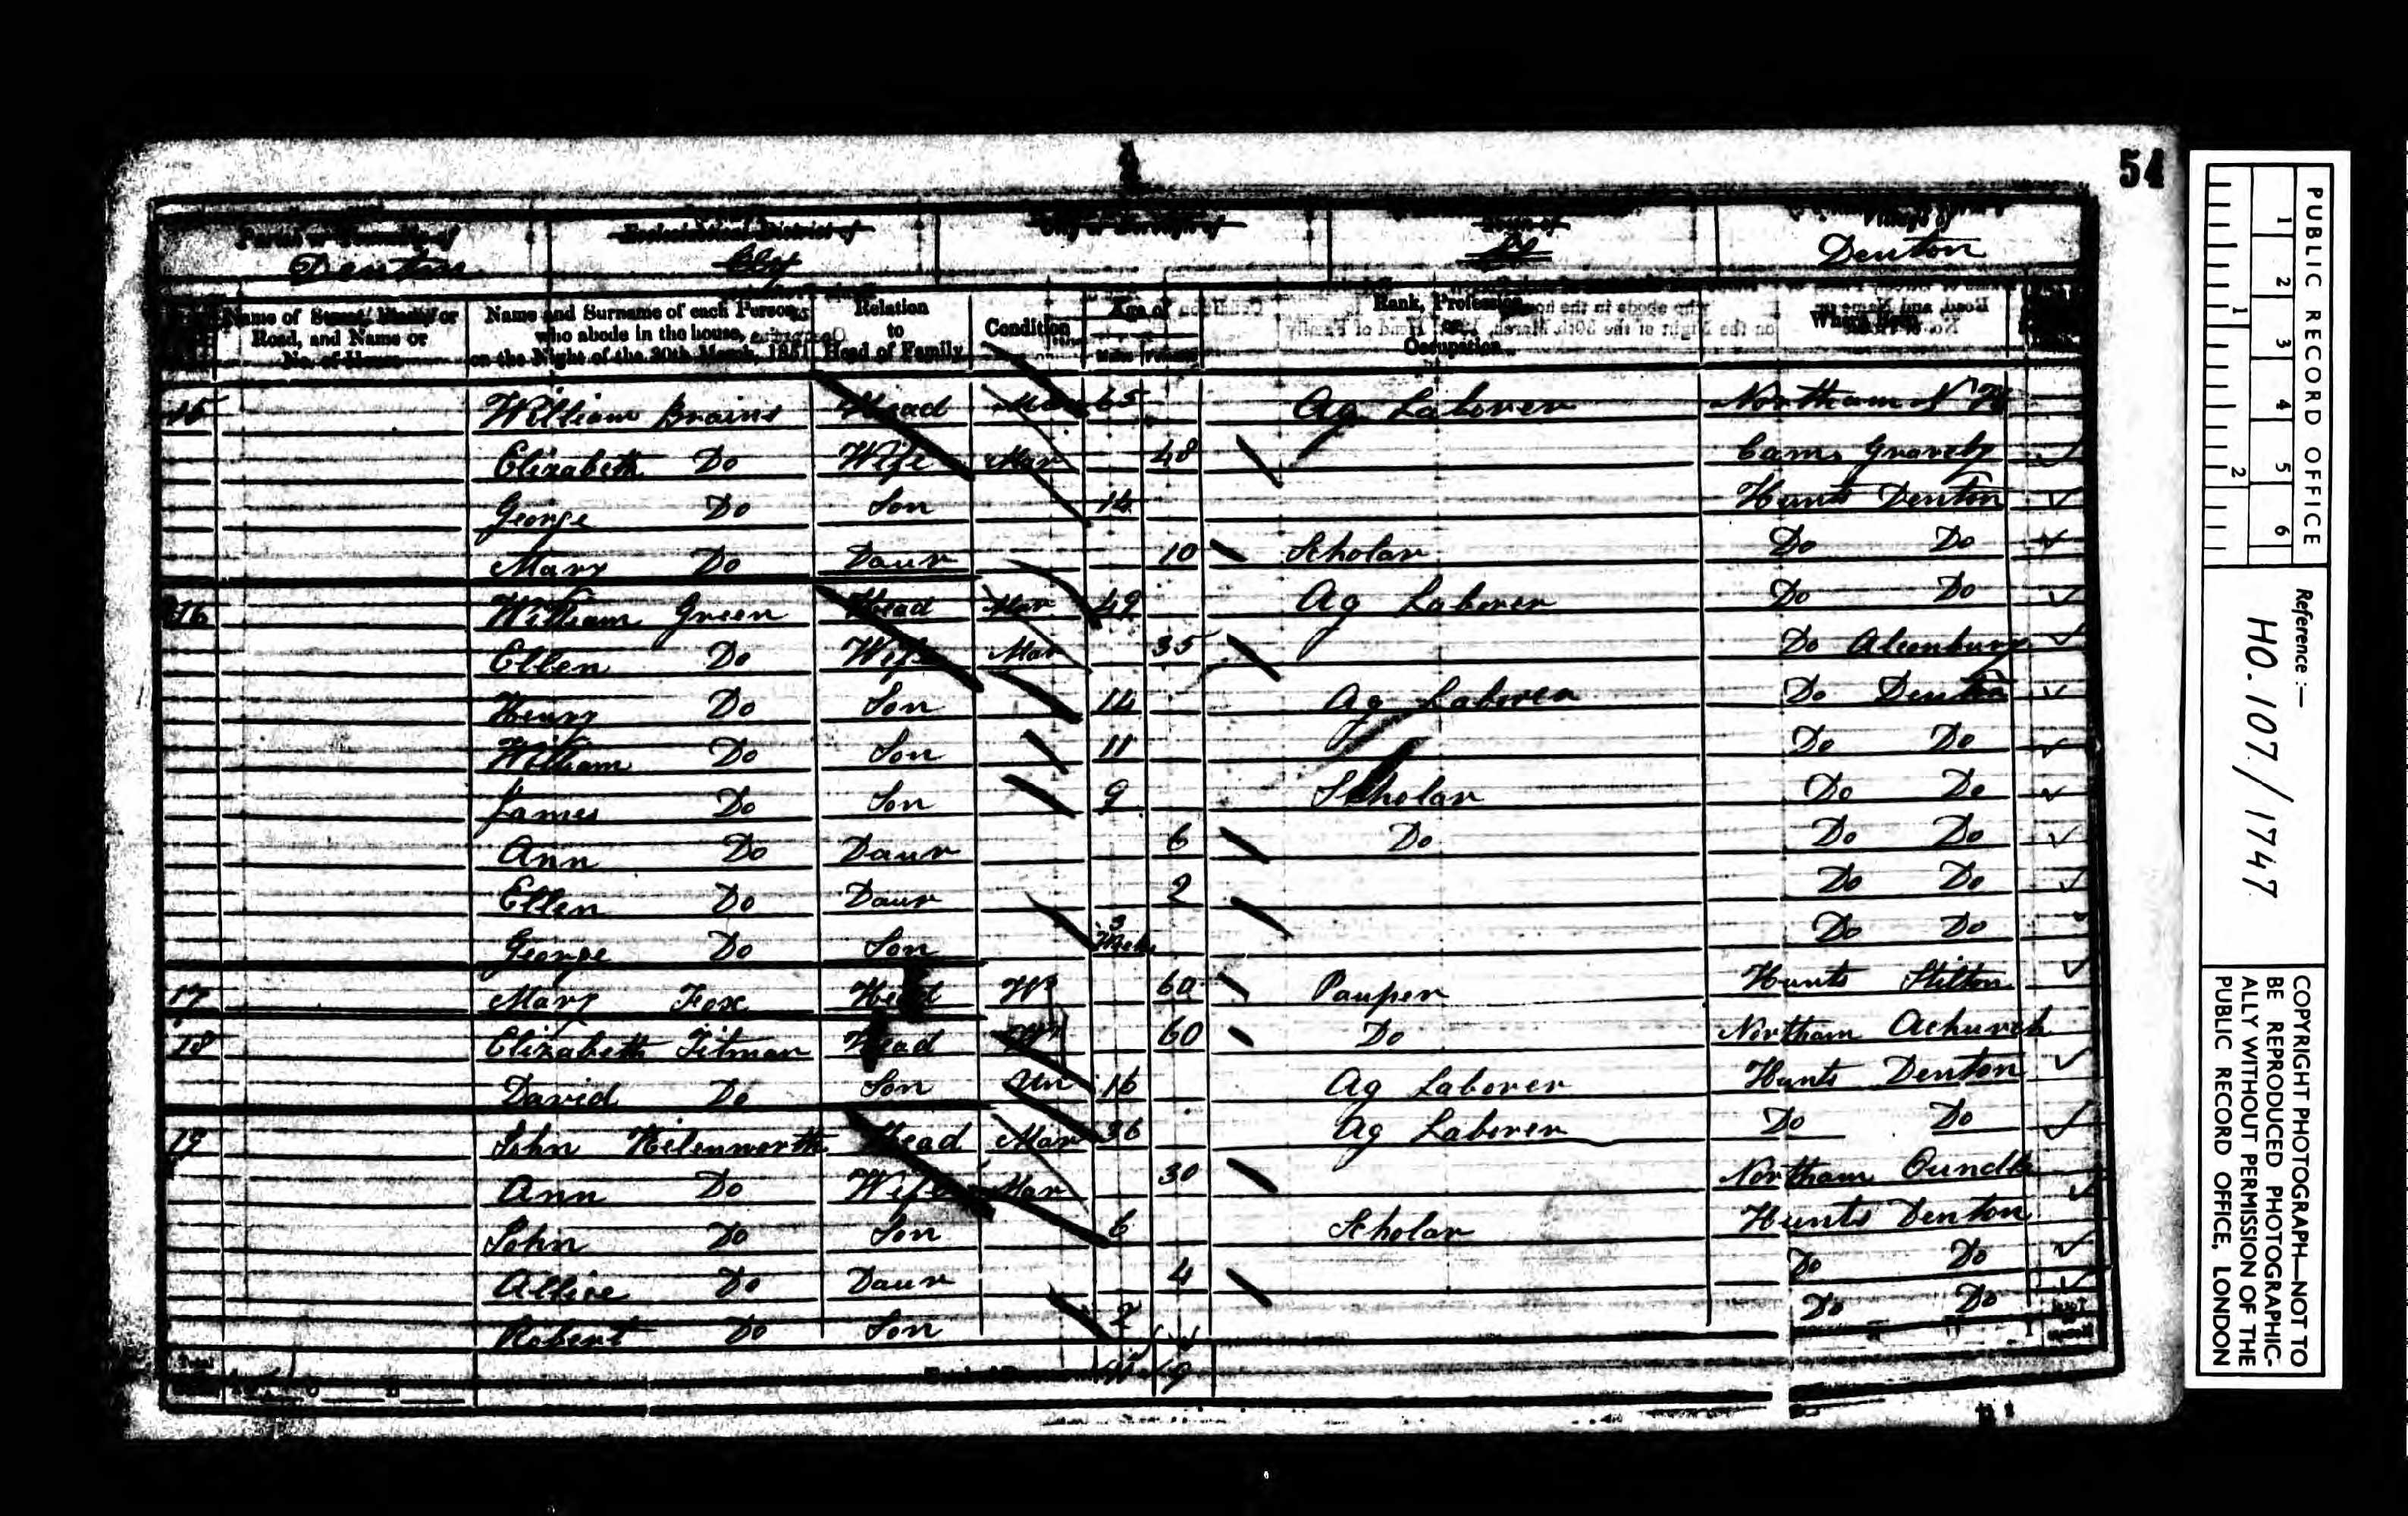 54
Parish or Township of
Ecclesiastical District of
City or Borough of
Town of
Village of
Denton
Denton
Name of Street, Place, or Road, and Name or No. of House
Name and Surname of each Person who abode in the house, on the Night of the 30th March, 1851
Relation to Head of Family
Condition
Age of
Males
Females
Rank, Profession, or Occupation
Where Born
15 William Brains Head Mar 65 Ag Laborer Northam
Elizabeth Do Wife Mar 48 Cam Gravely
George Do Son 14 Hunts Denton
Mary Do Daur 10 Scholar Do Do
16 William Green Head Mar 49 Ag Laborer Do Do
Ellen Do Wife Mar 35 Do Alconbury
Henry Do Son 14 Ag Laborer Do Denton
William Do Son 11 Do Do
James Do Son 9 Scholar Do Do
Ann Do Daur 6 Do Do Do
Ellen Do Daur 2 Do Do
George Do Son 3 Do Do
17 Mary Fox Head W 60 Pauper Hunts Stilton
18 Elizabeth Titman Head W 60 Do Northam Achurch
David Do Son Un 16 Ag Laborer Hunts Denton
19 John Head Mar 36 Ag Laborer Do Do
Ann Do Wife Mar 30 Northam Oundle
John Do Son 6 Scholar Hunts Denton
Allice Do Daur 4 Do Do
Robert Do Son 2 Do Do
9
PUBLIC RECORD OFFICE
1 2 3 4 5 6
1 2
Reference :—
HO. 107 / 1747
COPYRIGHT PHOTOGRAPH—NOT TO
BE REPRODUCED PHOTOGRAPHIC-
ALLY WITHOUT PERMISSION OF THE
PUBLIC RECORD OFFICE, LONDON